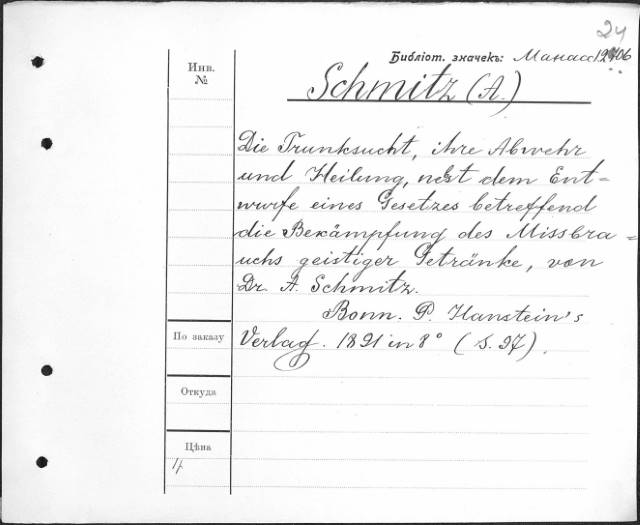 24
Библіот. значекъ: Манасс 12706
Инв.
№
Schmitz (A.)
Die Trunksucht, ihre Abwehr
und Heilung, nebst dem Ent=
wurfe eines Gesetzes betreffend
die Bekämpfung des Missbra=
uchs geistiger Getränke, von
Dr. A. Schmitz.
Bonn. P. Hanstein's
По заказу
Verlag. 1891 in 8° (S. 97).
Откуда
Цѣна